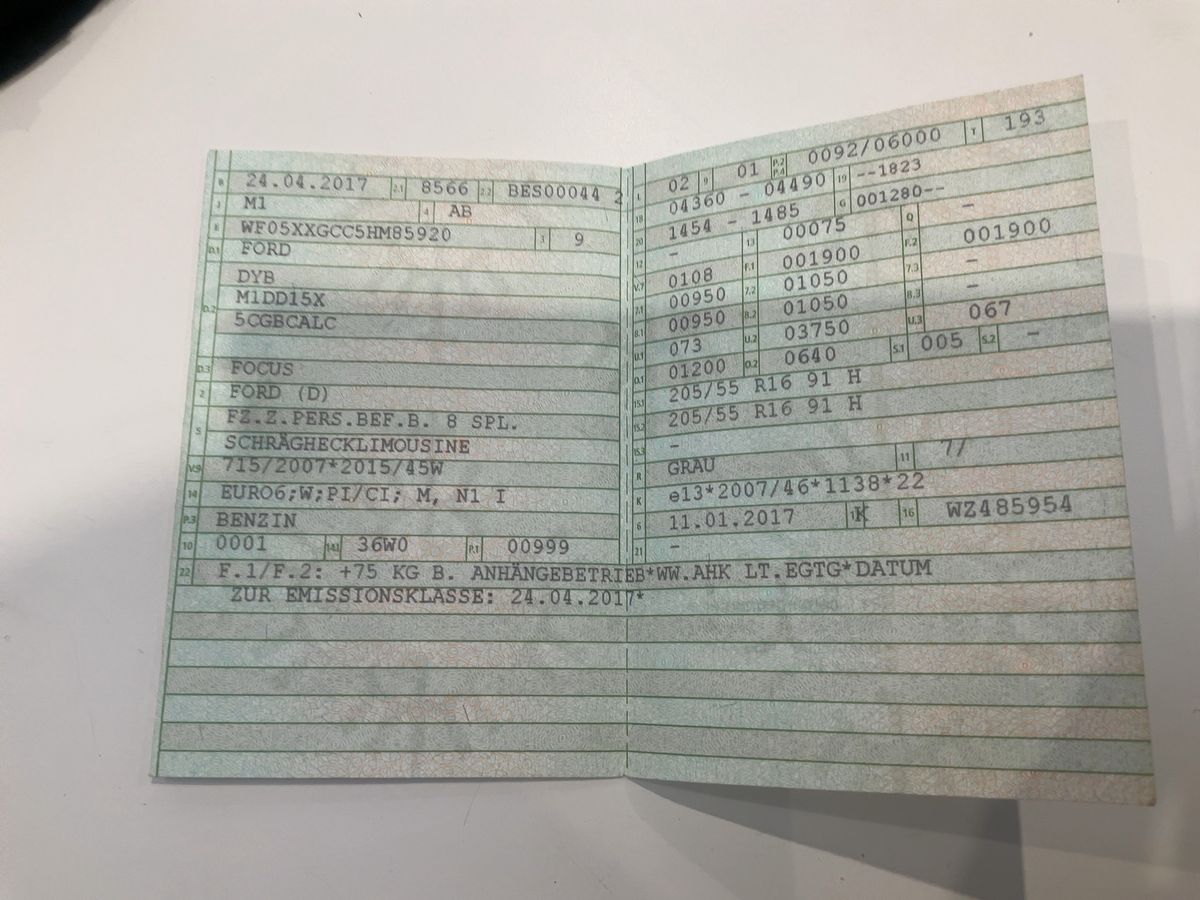 B 24.04.2017 2.1 8566 2.2 BES00044 2
J M1 4 AB
E WF05XXGCC5HM85920 3 9
D.1 FORD
D.2 DYB
M1DD15X
5CGBCALC
D.3 FOCUS
2 FORD (D)
5 FZ.Z.PERS.BEF.B. 8 SPL.
SCHRÄGHECKLIMOUSINE
V.9 715/2007*2015/45W
14 EURO6;W;PI/CI; M, N1 I
P.3 BENZIN
10 0001 14.1 36W0 P.1 00999
L 02 9 01 P.2 P.4 0092/06000 T 193
18 04360 - 04490 19 --1823
20 1454 - 1485 G 001280--
12 - 13 00075 Q -
V.7 0108 F.1 001900 F.2 001900
7.1 00950 7.2 01050 7.3 -
8.1 00950 8.2 01050 8.3 -
U.1 073 U.2 03750 U.3 067
O.1 01200 O.2 0640 S.1 005 S.2 -
15.1 205/55 R16 91 H
15.2 205/55 R16 91 H
15.3 -
R GRAU 11 7/
K e13*2007/46*1138*22
6 11.01.2017 17 K 16 WZ485954
21 -
22 F.1/F.2: +75 KG B. ANHÄNGEBETRIEB*WW.AHK LT.EGTG*DATUM
ZUR EMISSIONSKLASSE: 24.04.2017*